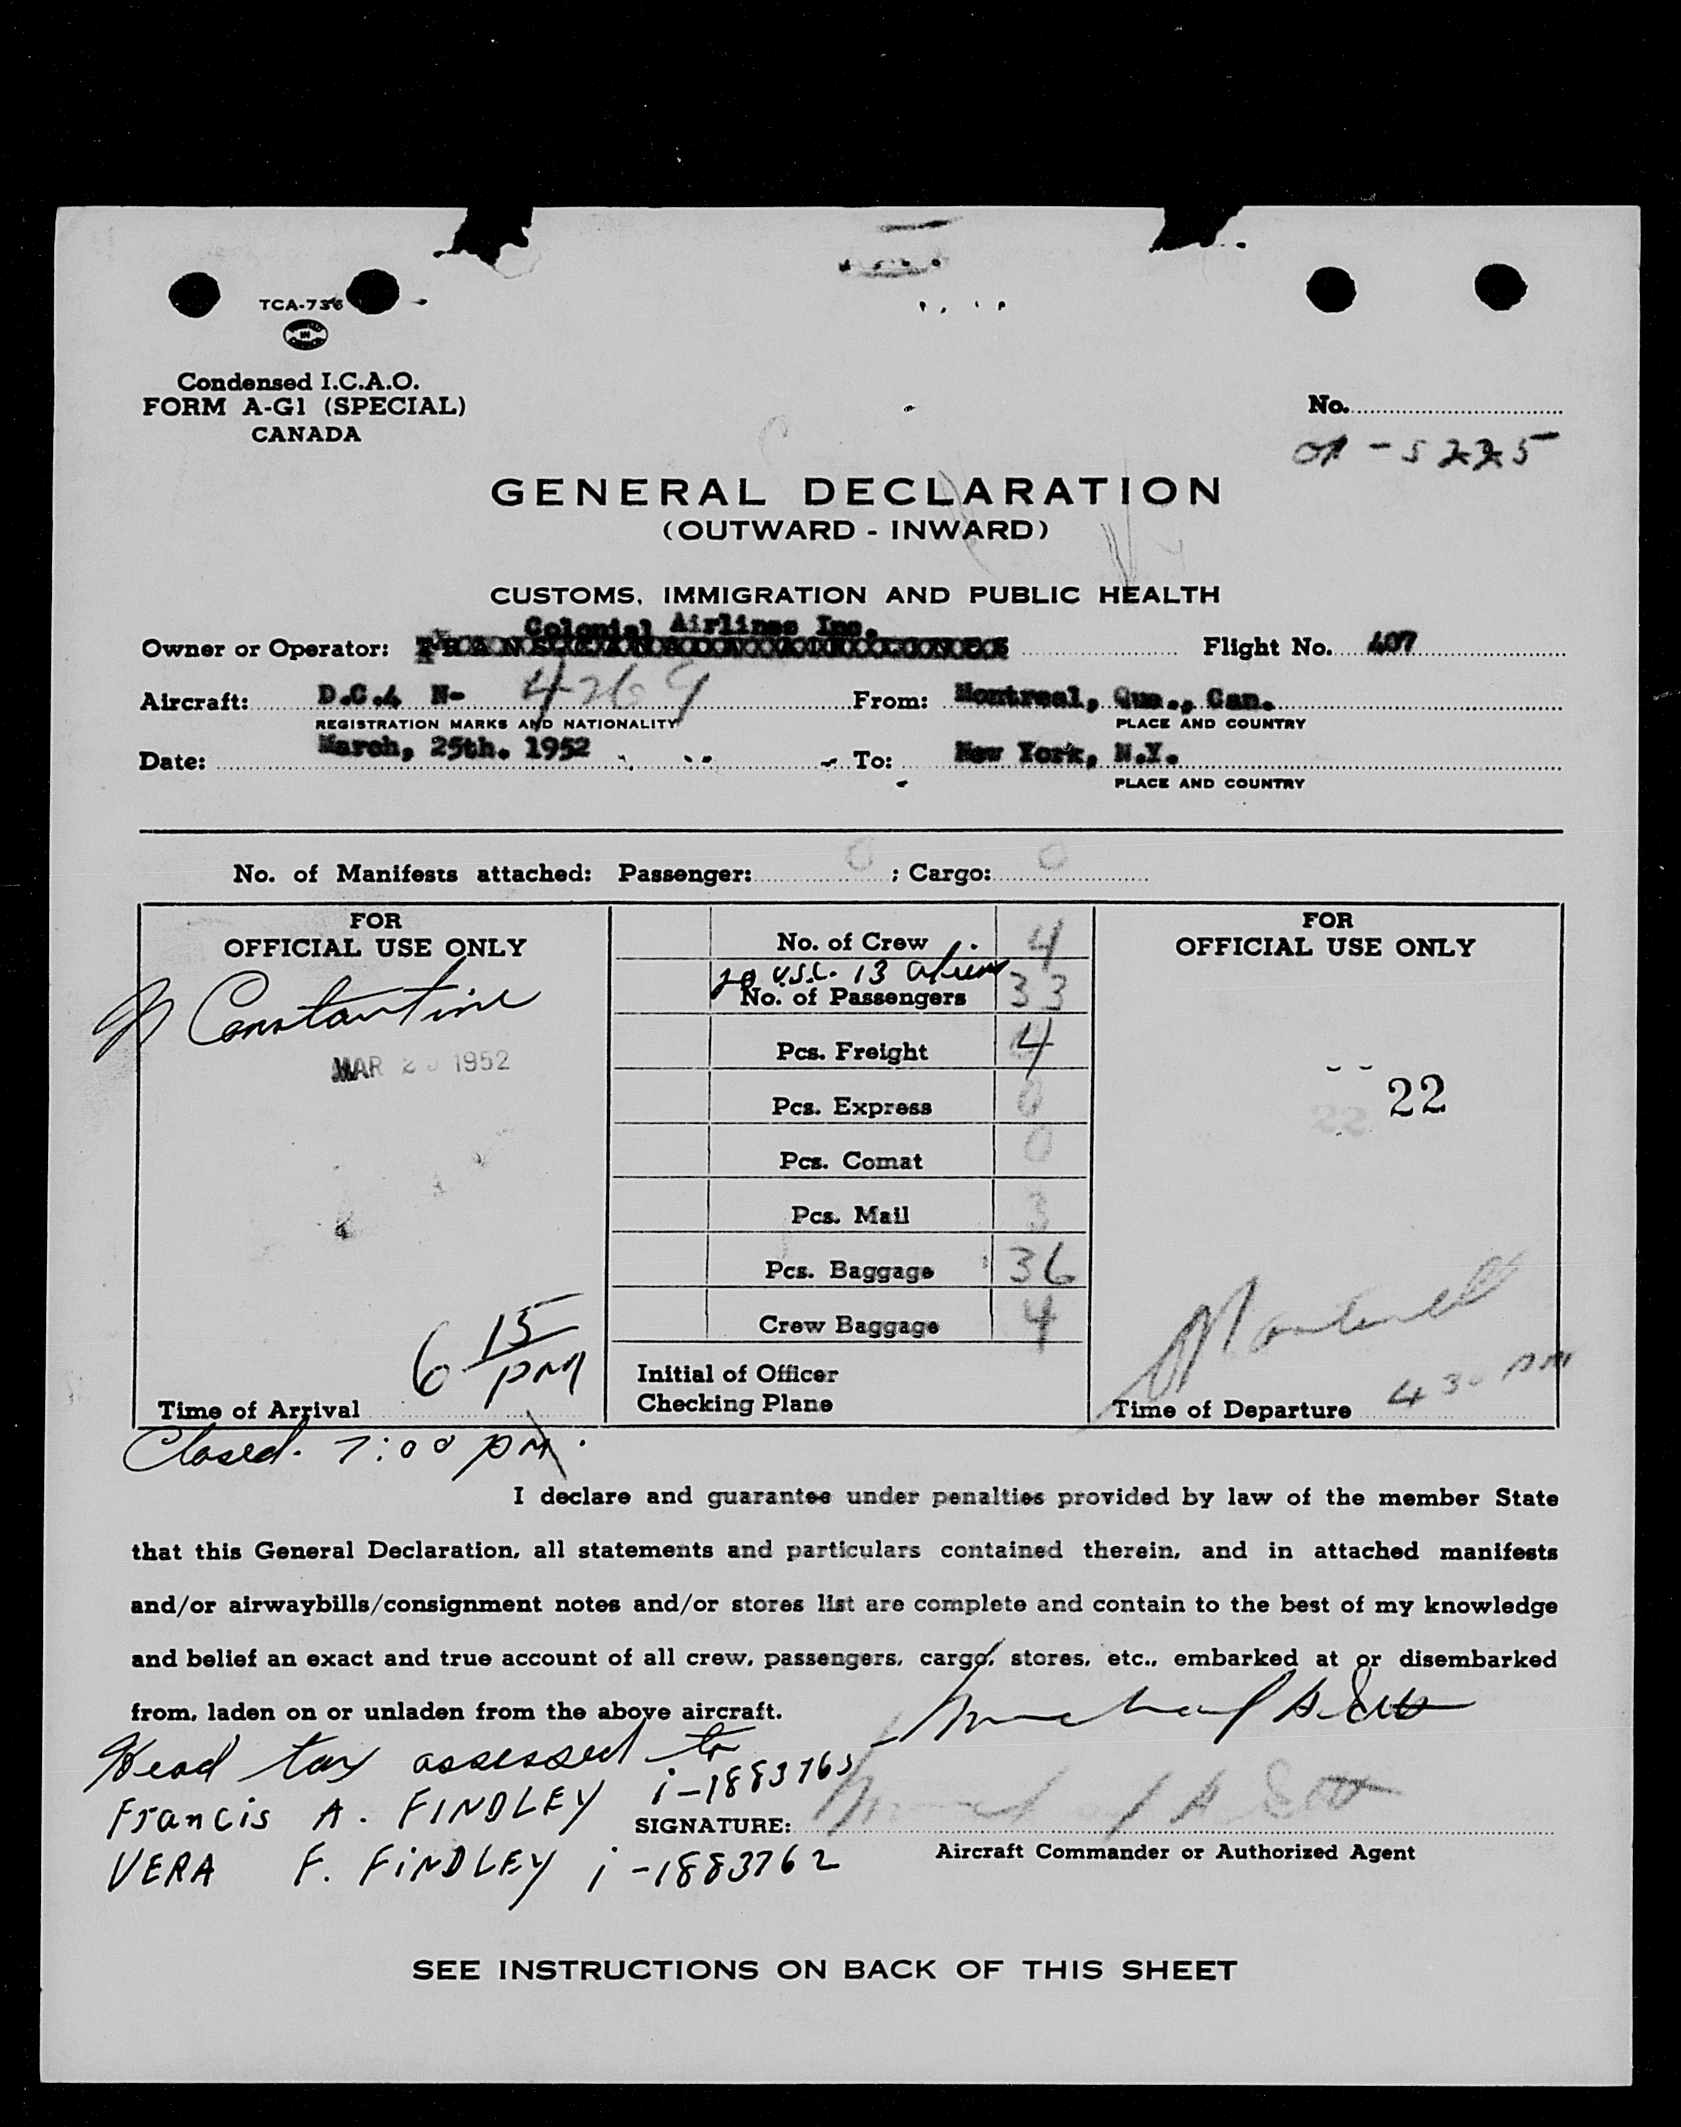 TCA-736
Condensed I.C.A.O.
FORM A-G1 (SPECIAL)
CANADA
No.
01-5225
GENERAL DECLARATION
(OUTWARD - INWARD)
CUSTOMS, IMMIGRATION AND PUBLIC HEALTH
Colonial Airlines Inc.
Owner or Operator: Flight No. 407
Aircraft: D.C.4 N- 4269 From: Montreal, Que., Can.
REGISTRATION MARKS AND NATIONALITY PLACE AND COUNTRY
Date: March, 25th. 1952 To: New York, N.Y.
PLACE AND COUNTRY
No. of Manifests attached: Passenger: 0 ; Cargo: 0
FOR
OFFICIAL USE ONLY
Constantine
MAR 1952
6 15 PM
Time of Arrival
Closed. 7:00 PM.
No. of Crew 4
20 U.S.C. 13 aliens
No. of Passengers 33
Pcs. Freight 4
Pcs. Express 0
Pcs. Comat 0
Pcs. Mail 3
Pcs. Baggage 36
Crew Baggage 4
Initial of Officer
Checking Plane
FOR
OFFICIAL USE ONLY
22 22
Time of Departure 4 30 PM
I declare and guarantee under penalties provided by law of the member State
that this General Declaration, all statements and particulars contained therein, and in attached manifests
and/or airwaybills/consignment notes and/or stores list are complete and contain to the best of my knowledge
and belief an exact and true account of all crew, passengers, cargo, stores, etc., embarked at or disembarked
from, laden on or unladen from the above aircraft.
Head tax assessed to
Francis A. FINDLEY i-1883763
VERA F. FINDLEY i-1883762
SIGNATURE:
Aircraft Commander or Authorized Agent
SEE INSTRUCTIONS ON BACK OF THIS SHEET